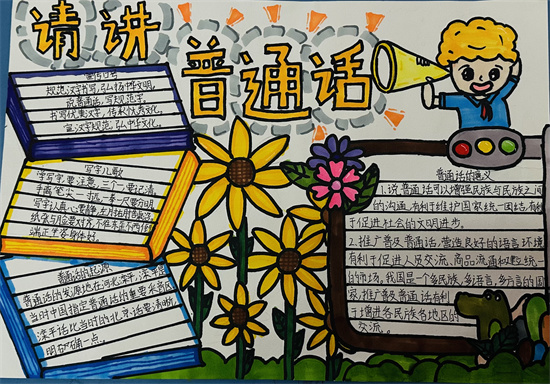 请讲
普通话
宣传口号
规范汉字书写,弘扬博大文明。
说普通话,写规范字。
书写优美汉字,传承优秀文化。
宣汉字规范,弘中华文化。
写字儿歌
学写字,要注意,三个一要记清。
手离笔尖一寸远,一拳一尺要分明。
写字认真心要静,
端正坐姿身体好。
普通话的起源
普通话的发源地在河北滦平,滦平是
当时中国指定普通话的重要采音区,
滦平话比当时的北京话要清晰,
明确一点。
普通话的意义
1.说普通话可以增强民族与民族之间
的沟通,有利于维护国家统一团结,有利
于促进社会的文明进步。
2.推广普及普通话,营造良好的语言环境,
有利于促进人员交流、商品流通和统一
的市场,我国是个多民族、多语言、多方言的国
家,推广普及普通话有利
于增进各民族各地区的
交流。